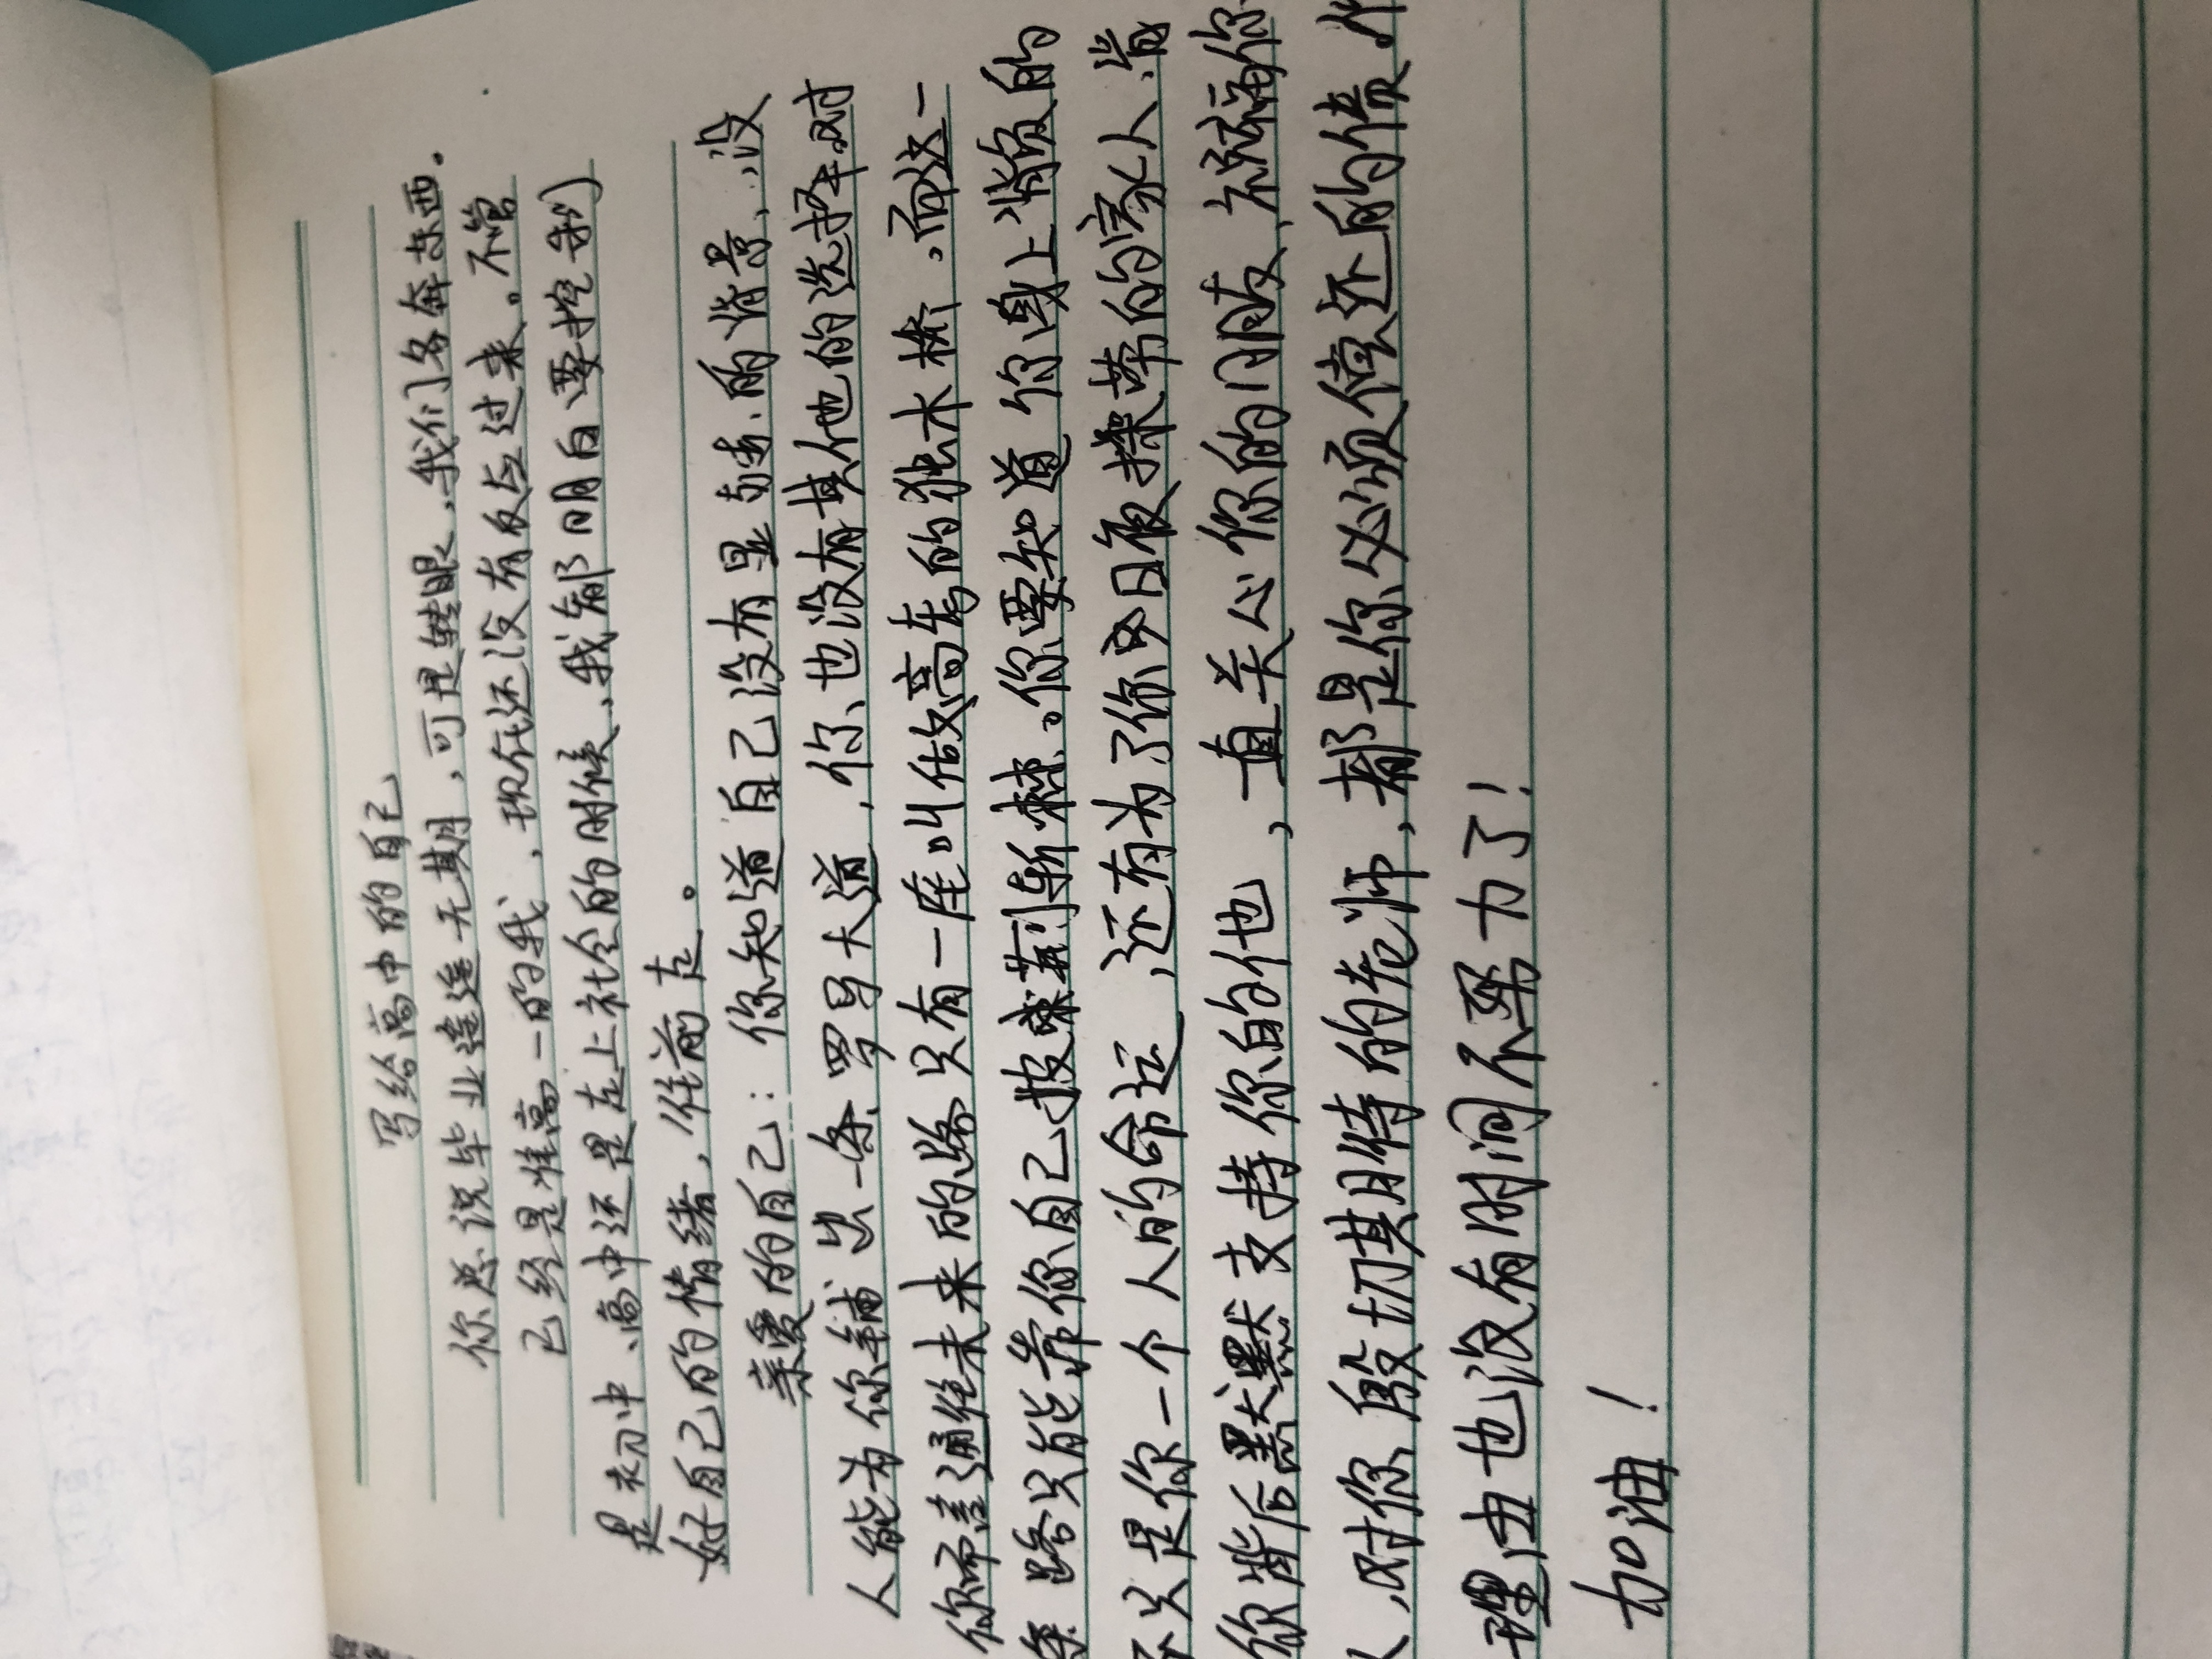 写给高中的自己
你总说毕业遥遥无期，可是转眼、我们各奔东西。
已经是准高一的我，现在还没有反应过来。不管
是初中、高中还是走上社会的时候、我都明白要控制
好自己的情绪，往前走。
亲爱的自己：你知道自己没有显赫的背景、没
人能为你铺出一条罗马大道，你、也没有其他的选择对
你而言通往未来的路只有一座叫做高考的独木桥，而这一
条路只能靠你自己披荆斩棘。你要知道你身上背负的
不只是你一个人的命运、还有为了你日夜操劳的家人、
你背后默默支持你的他，一直关心你的朋友、
人，对你殷切期待的老师，都是你必须偿还的债
理由也没有时间不努力了！
加油！